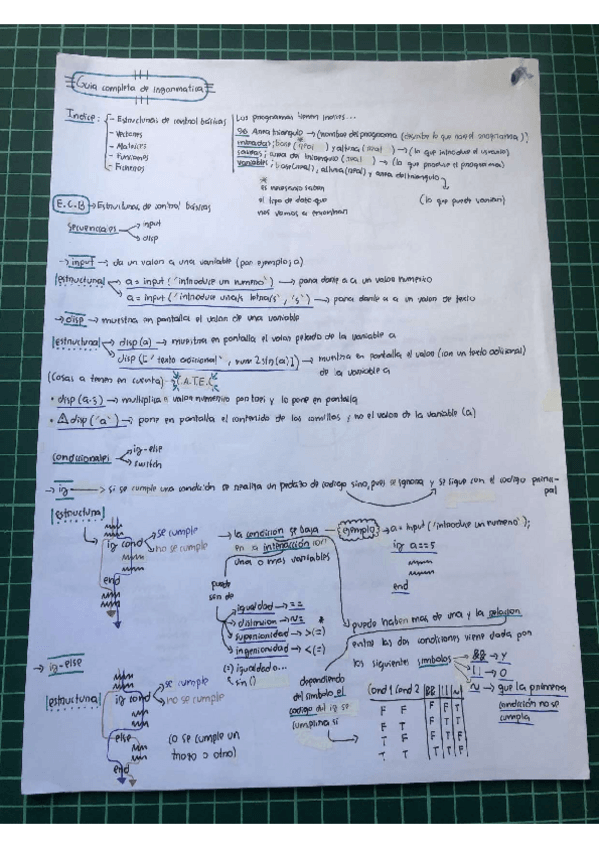 Guia completa de Informatica
Indice:
- Estructuras de control básicas
- Vectores
- Matrices
- Funciones
- Ficheros
Los programas tienen indices...
% Area triangulo → (nombre del programa (describe lo que hace el programa))
entradas; base (real) y altura (real) → (lo que introduce el usuario)
salidas; area del triangulo (real) → (lo que produce el programa)
variables; base (real), altura (real) y area del triangulo
(lo que puede variar)
* es necesario saber
el tipo de dato que
nos vamos a encontrar
E.C.B → Estructuras de control básicas
Secuenciales
input
disp
→ input → da un valor a una variable (por ejemplo; a)
|estructura|
a = input ('introduce un numero') → para darle a a un valor numerico
a = input ('introduce una/s letra/s', 's') → para darle a a un valor de texto
→ disp → muestra en pantalla el valor de una variable
|estructura|
disp (a) → muestra en pantalla el valor pelado de la variable a
disp (['texto adicional', num2str(a)]) → muestra en pantalla el valor (con un texto adicional)
de la variable a
(Cosas a tener en cuenta) → C.A.T.E.C
• disp (a.3) → multiplica el valor numerico por tres y lo pone en pantalla
• ⚠ disp ('a') → pone en pantalla el contenido de las comillas y no el valor de la variable (a)
Condicionales
if-else
switch
→ if → si se cumple una condición se realiza un pedazo de codigo sino, pues se ignora y se sigue con el codigo principal
|estructura|
if cond
se cumple
no se cumple
end
→ la condicion se basa
en la interacción con
una o mas variables
ejemplo → a = input ('introduce un numero');
if a==5
end
puede
ser de
igualdad → ==
distincion → ~=
superioridad → >(=)
inferioridad → <(=)
(=) igualdad o...
sin ()
puede haber mas de una y la relacion
entre las dos condiciones viene dada por
los siguientes simbolos
&& → y
|| → o
~ → que la primera
condición no se
cumpla
→ if-else
|estructura|
if cond
se cumple
no se cumple
else
end
(o se cumple un
dependiendo
del simbolo el
codigo del if se
cumplira si
Cond 1 Cond 2 && || ~
F F F F T
F T F T T
T F F T F
T T T T F